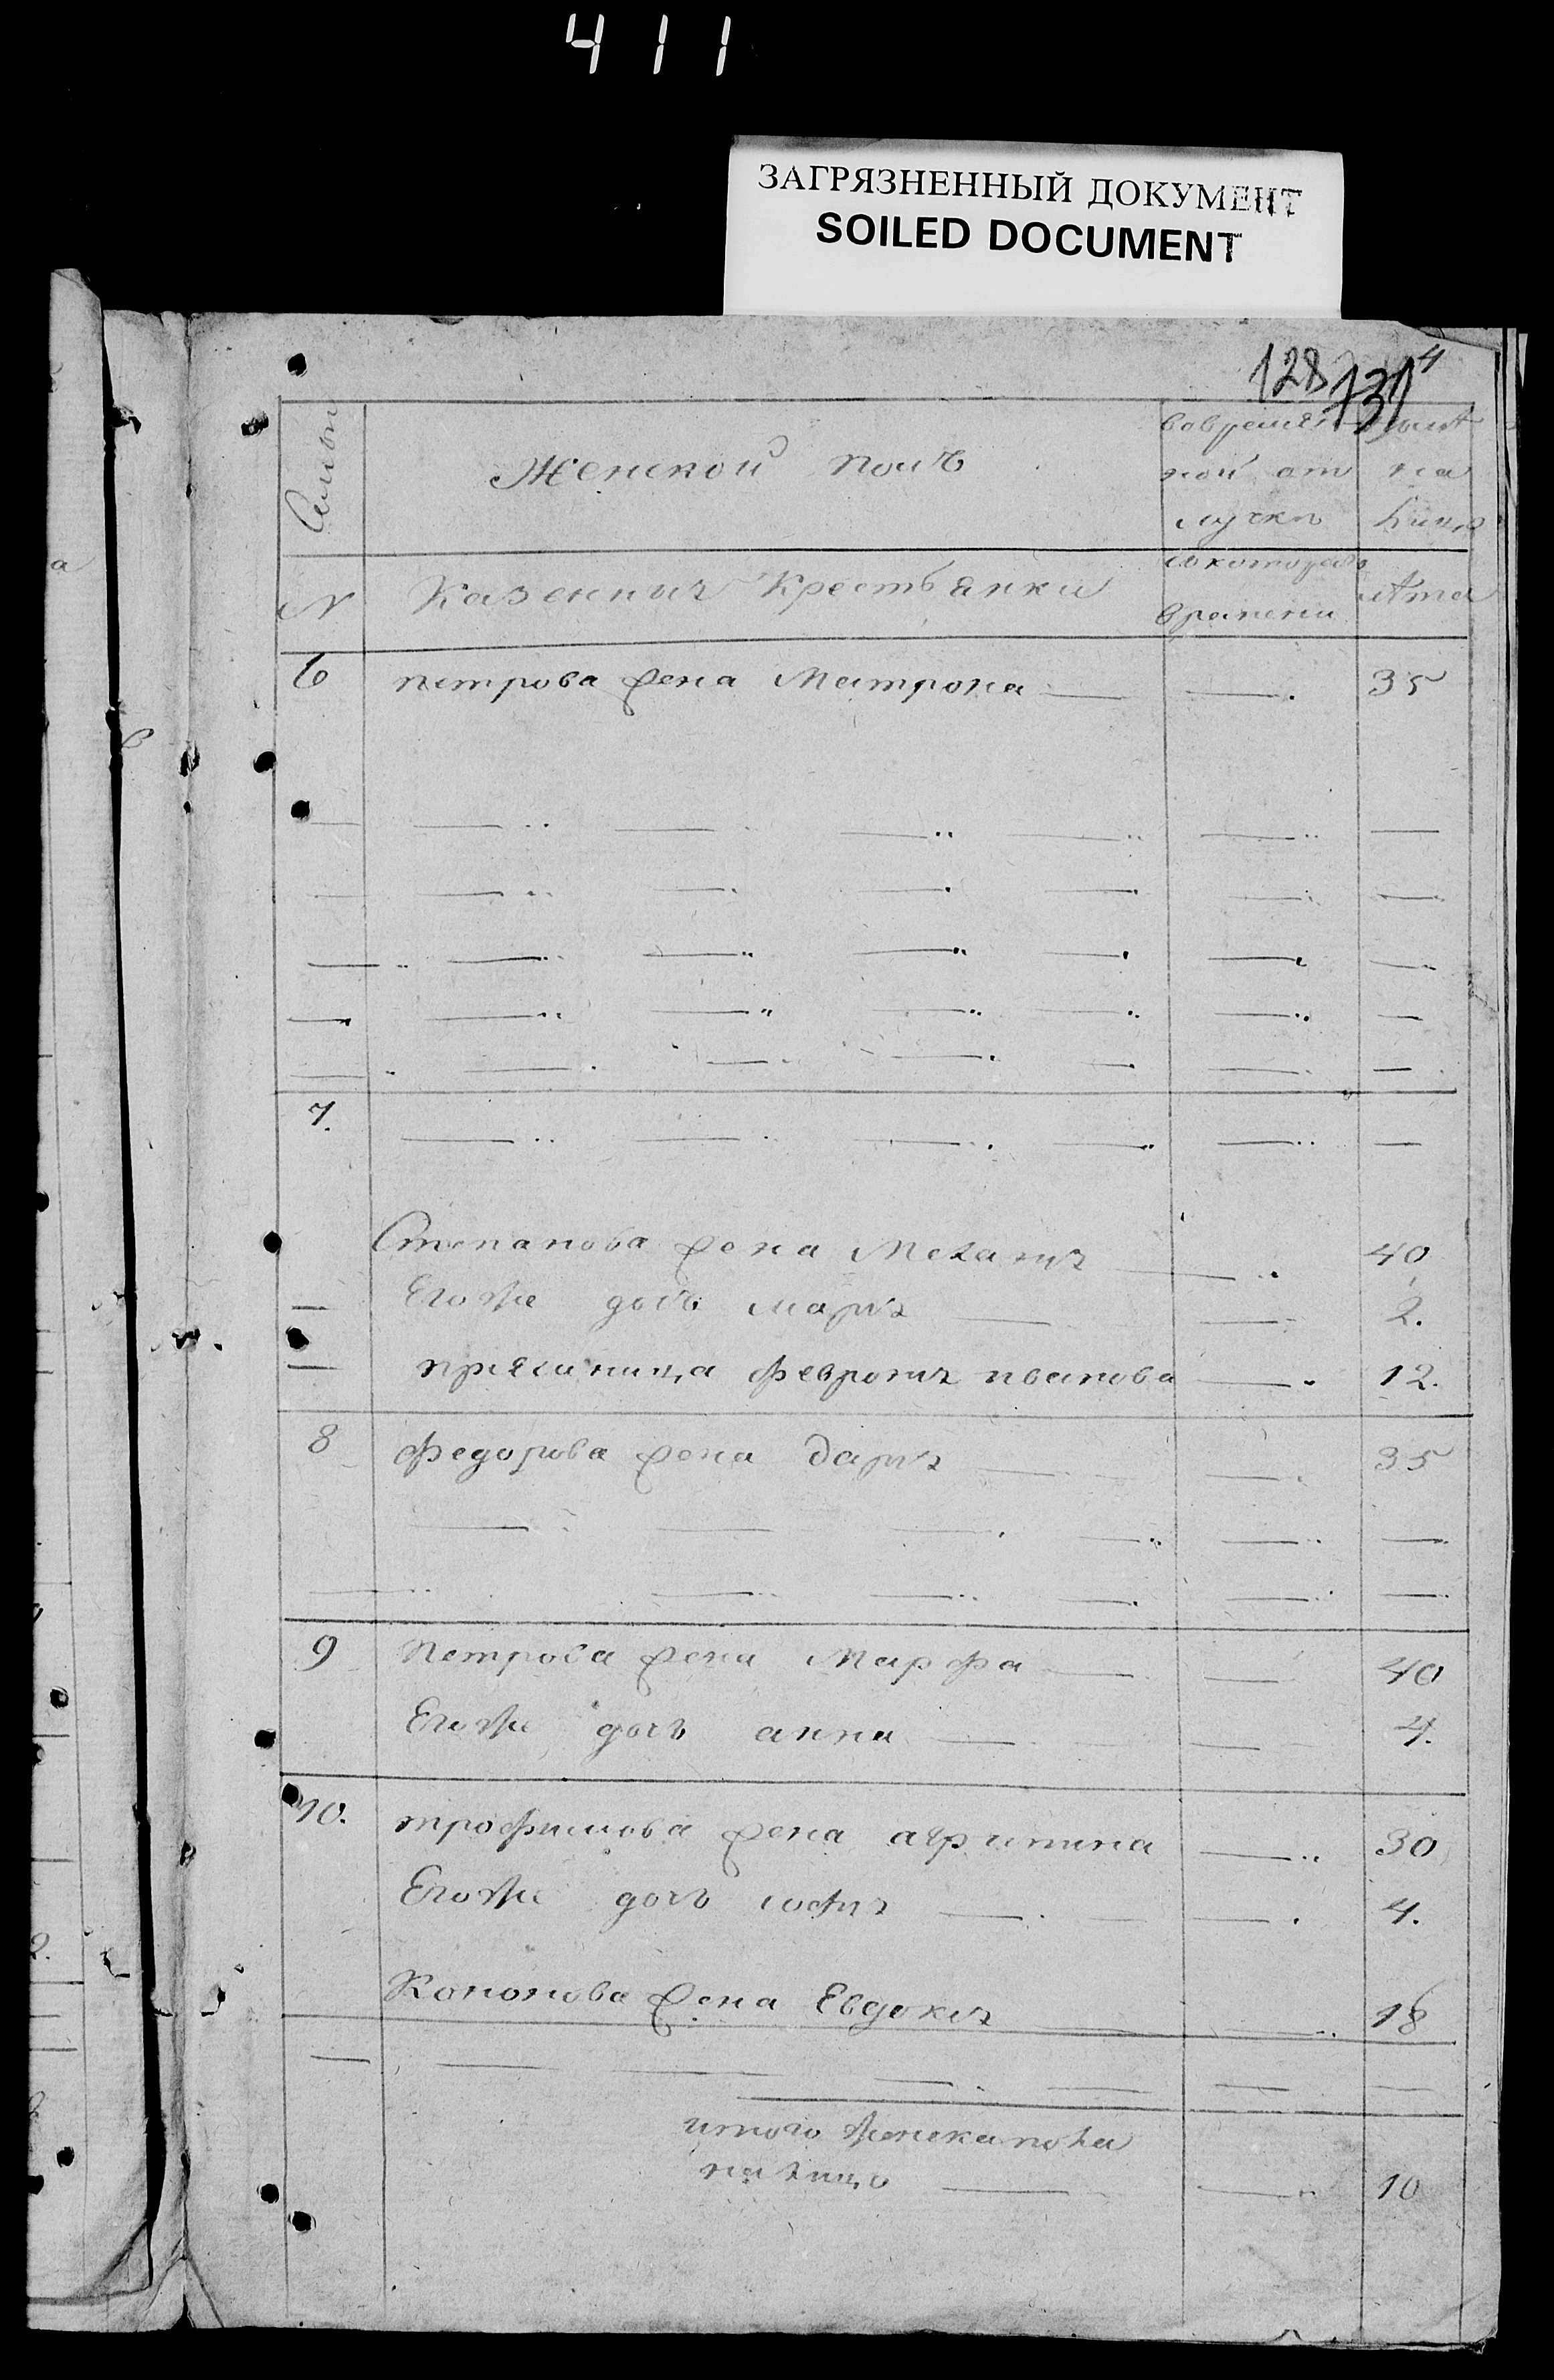 411
ЗАГРЯЗНЕННЫЙ ДОКУМЕНТ
SOILED DOCUMENT
128 131 4
Женской полъ
во времян
ной от на
лучкѣ лицо
N Казенныя Крестьянки съ котораго лѣта
времени
6 петрова жена Матрона 35
7.
Степанова жена Меланя 40
Егоже дочь маря 2.
приемница Февроня иванова 12.
8 Федорова жена Даря 35
9 Петрова жена Марфа 40
Егоже дочь анна 4.
10. трофимова жена агрипина 30
Егоже дочь софия 4.
Кононова жена Евдокия 18
итого женска пола
на лицо 10